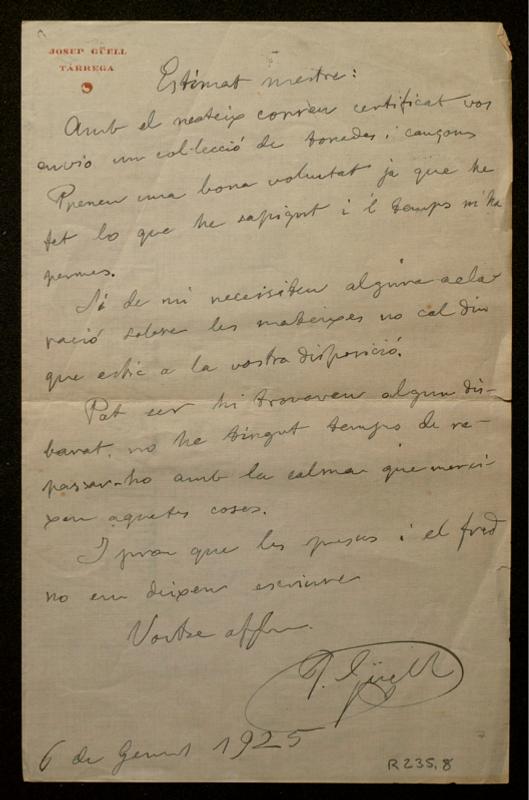 JOSEP GÜELL
TÀRREGA
Estimat mestre:
Amb el mateix correu certificat vos
envio un col·lecció de tonedes i cançons
Preneu una bona voluntat ja que he
fet lo que he sapigut i l temps m'ha
permes.
Si de mi necesiteu alguna acla
ració sobre les mateixes no cal dir
que estic a la vostra disposició.
Pot ser hi trovareu algun dis-
barat, no he tingut temps de re-
passar-ho amb la calma que merei-
xen aquetes coses.
I prou que les presses i el fred
no em deixen escriure
Vostre affm.
J. Güell
6 de Gener 1925
R 235, 8